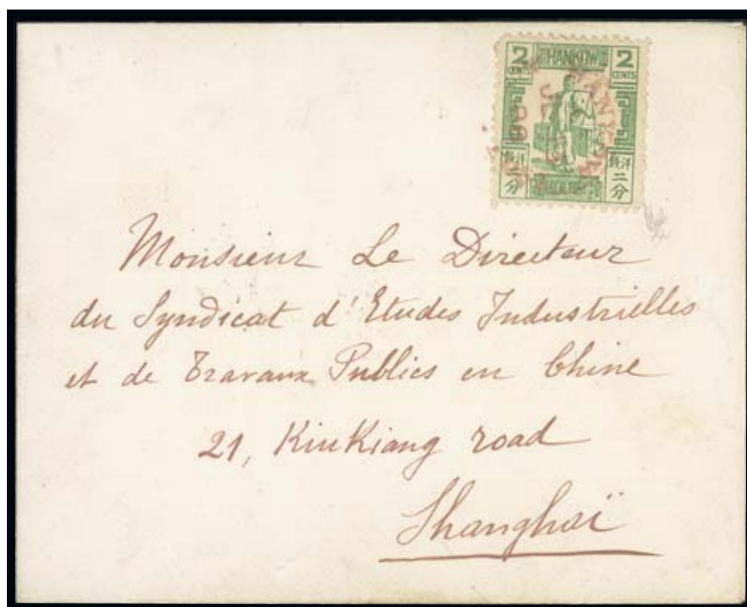 2 HANKOW 2
CENTS CENTS
HANKOW
洋
二分 二分
LOCAL POST
Monsieur Le Directeur
du Syndicat d'Etudes Industrielles
et de Travaux Publics en Chine
21, KiuKiang road
Shanghaï